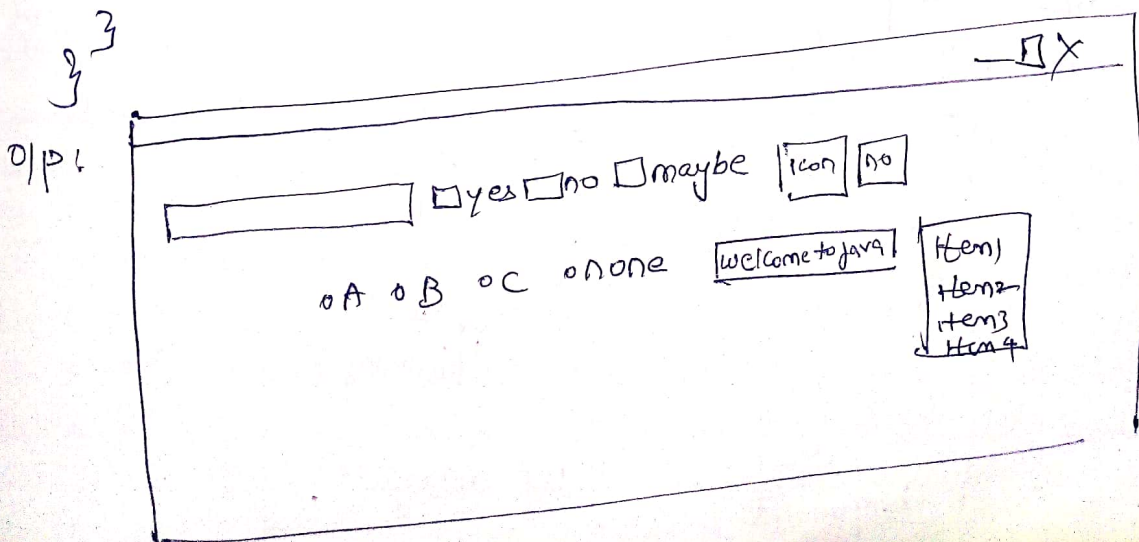 }
}
o/p:
_ □ X
□yes □no □maybe icon no
oA oB oC onone welcome to java
item1
item2
item3
item4